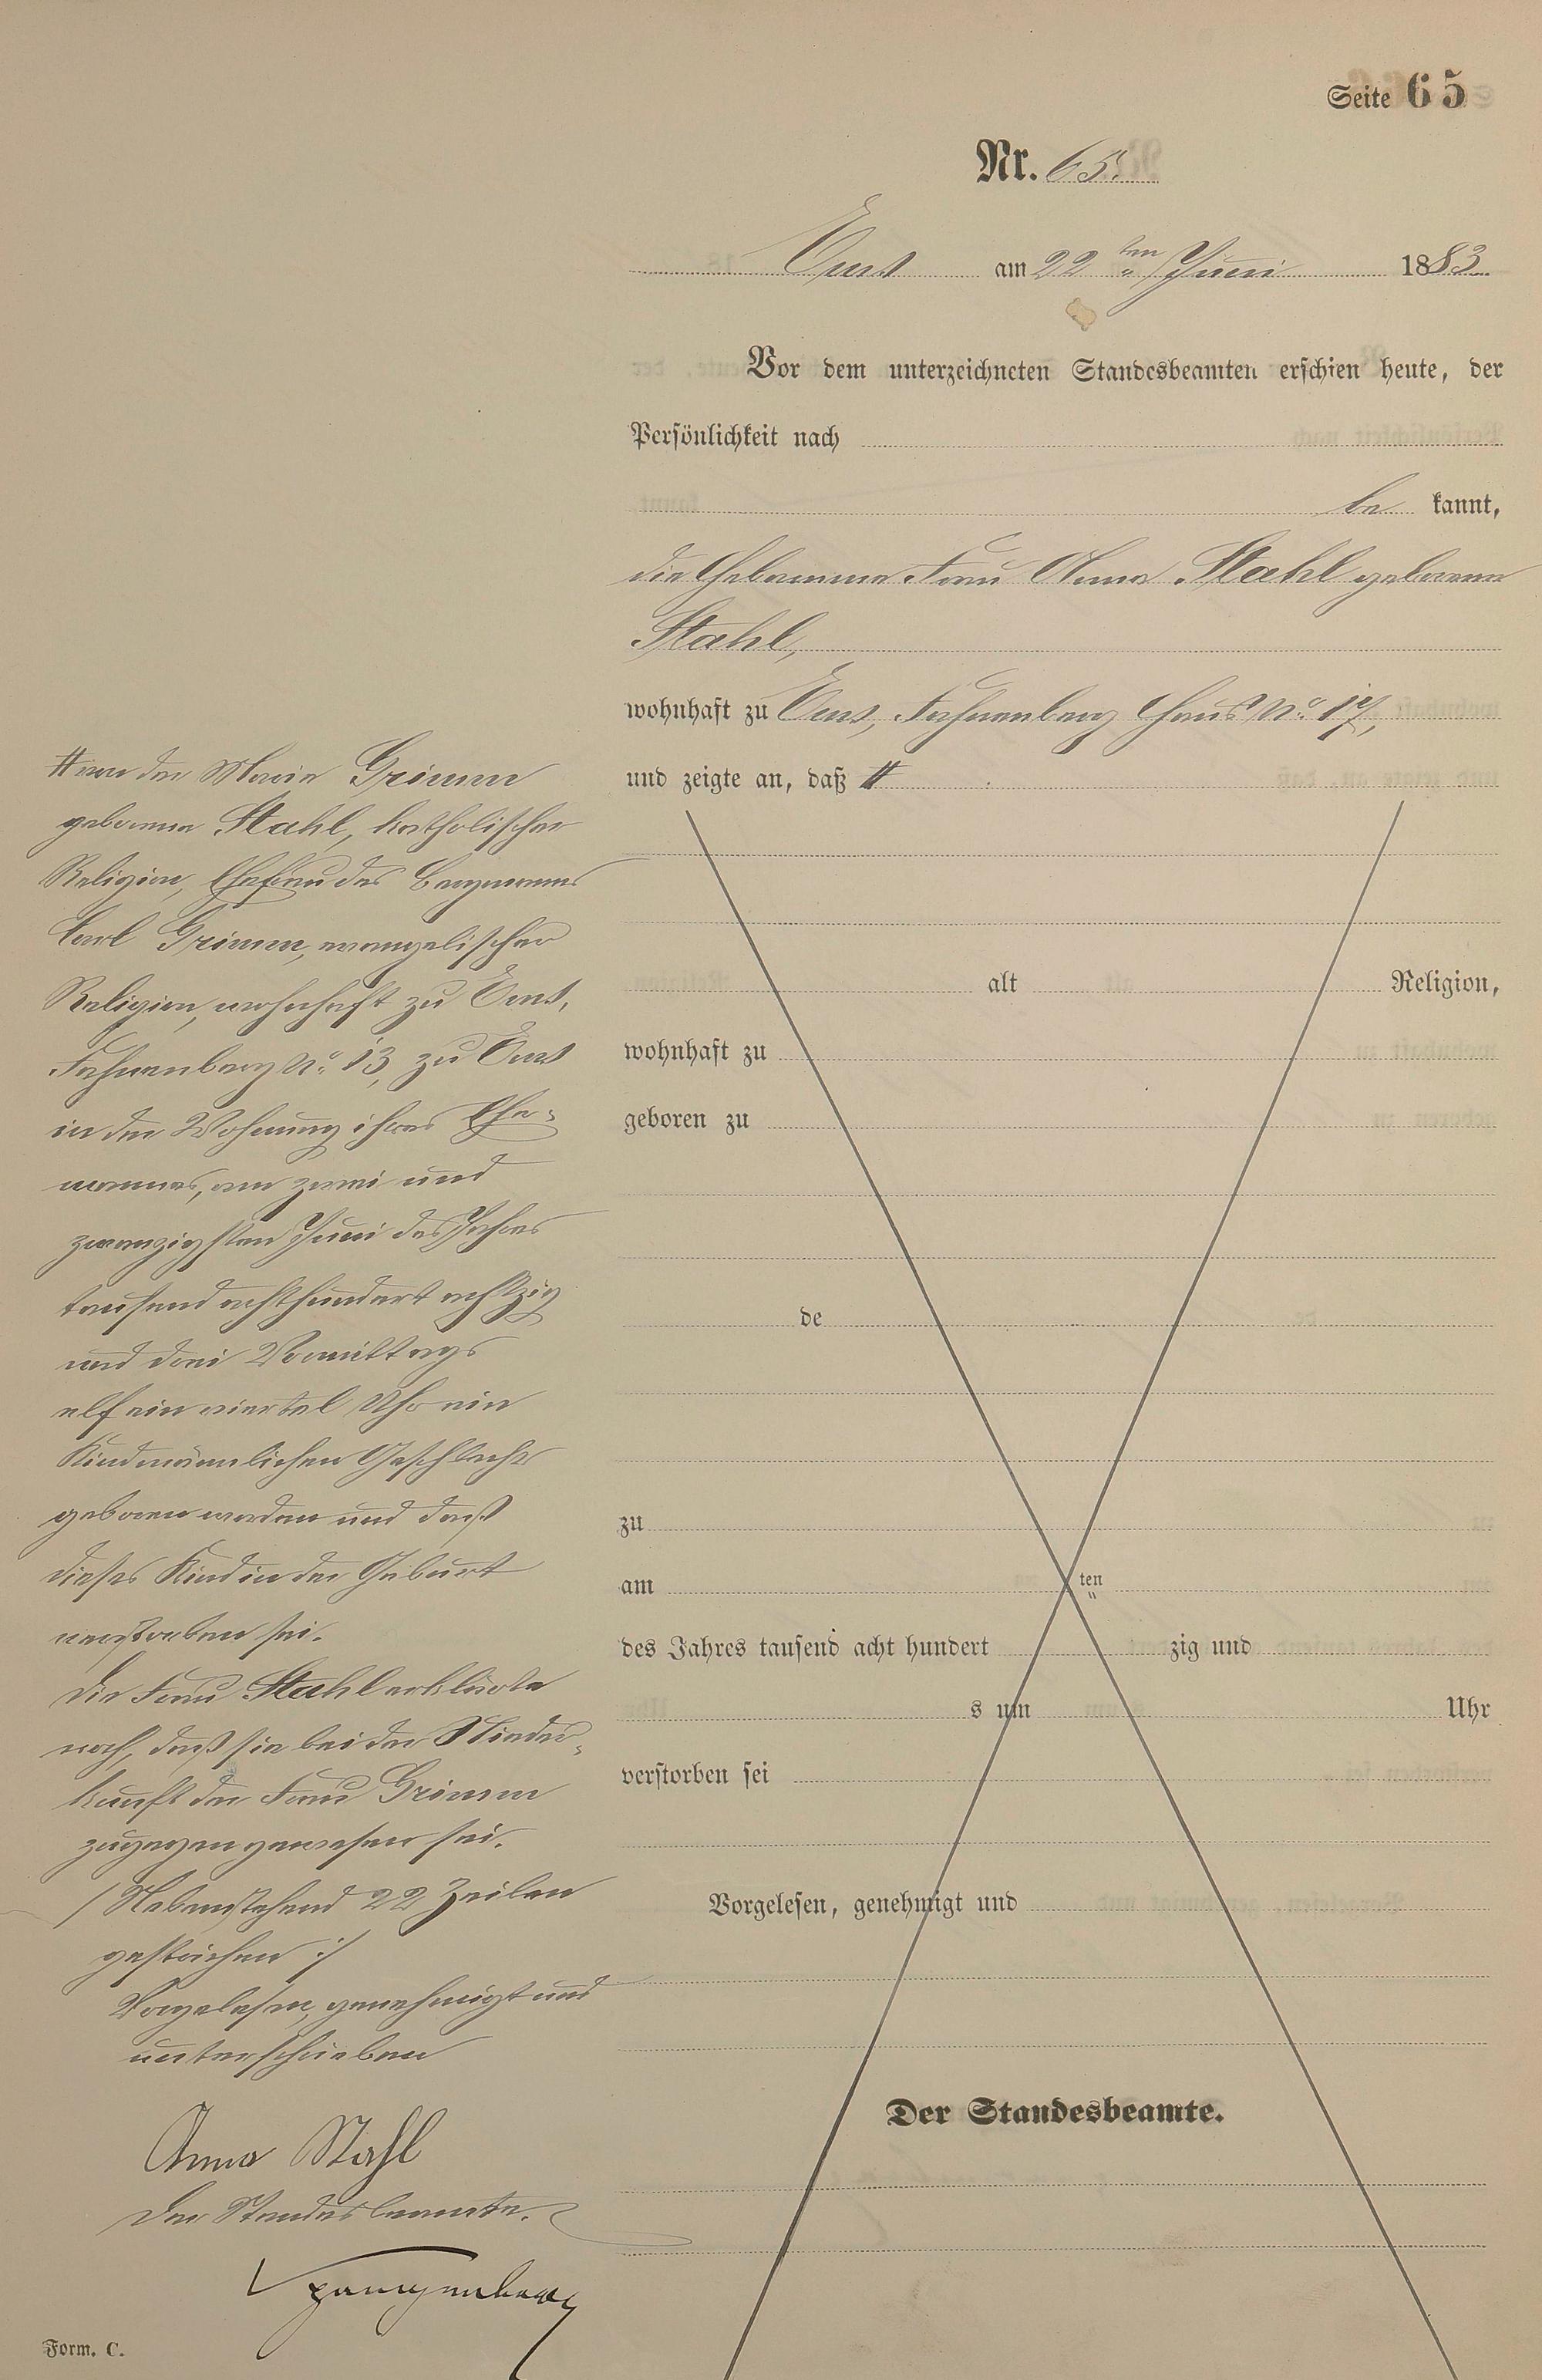 Seite 65
Nr. 65.
Ems am 22ten Juni 1883
Vor dem unterzeichneten Standesbeamten erschien heute, der
Persönlichkeit nach
be kannt,
die Hebamme Frau Anna Stahl geborene
Stahl,
wohnhaft zu Ems, Fahnenberg Haus No. 17,
und zeigte an, daß #
# von der Maria Grimm
geborene Stahl, katholischer
Religion, Ehefrau des Bergmanns
Carl Grimm, evangelischer
Religion, wohnhaft zu Ems,
Fahnenberg No. 13, zu Ems
in der Wohnung ihres Ehe-
mannes, am zwei und
zwanzigsten Juni des Jahres
tausend achthundert achtzig
und drei Vormittags
elf ein viertel Uhr ein
Kind männlichen Geschlechts
geboren worden und daß
dieses Kind in der Geburt
verstorben sei.
Die Frau Stahl erklärte
noch, daß sie bei der Nieder-
kunft der Frau Grimm
zugegen gewesen sei.
/: Nebenstehend 22 Zeilen
gestrichen :/
Vorgelesen, genehmigt und
unterschrieben
Anna Stahl
Der Standesbeamte.
alt Religion,
wohnhaft zu
geboren zu
de
zu
am ten
des Jahres tausend acht hundert zig und
s um Uhr
verstorben sei
Vorgelesen, genehmigt und
Der Standesbeamte.
Form. C.